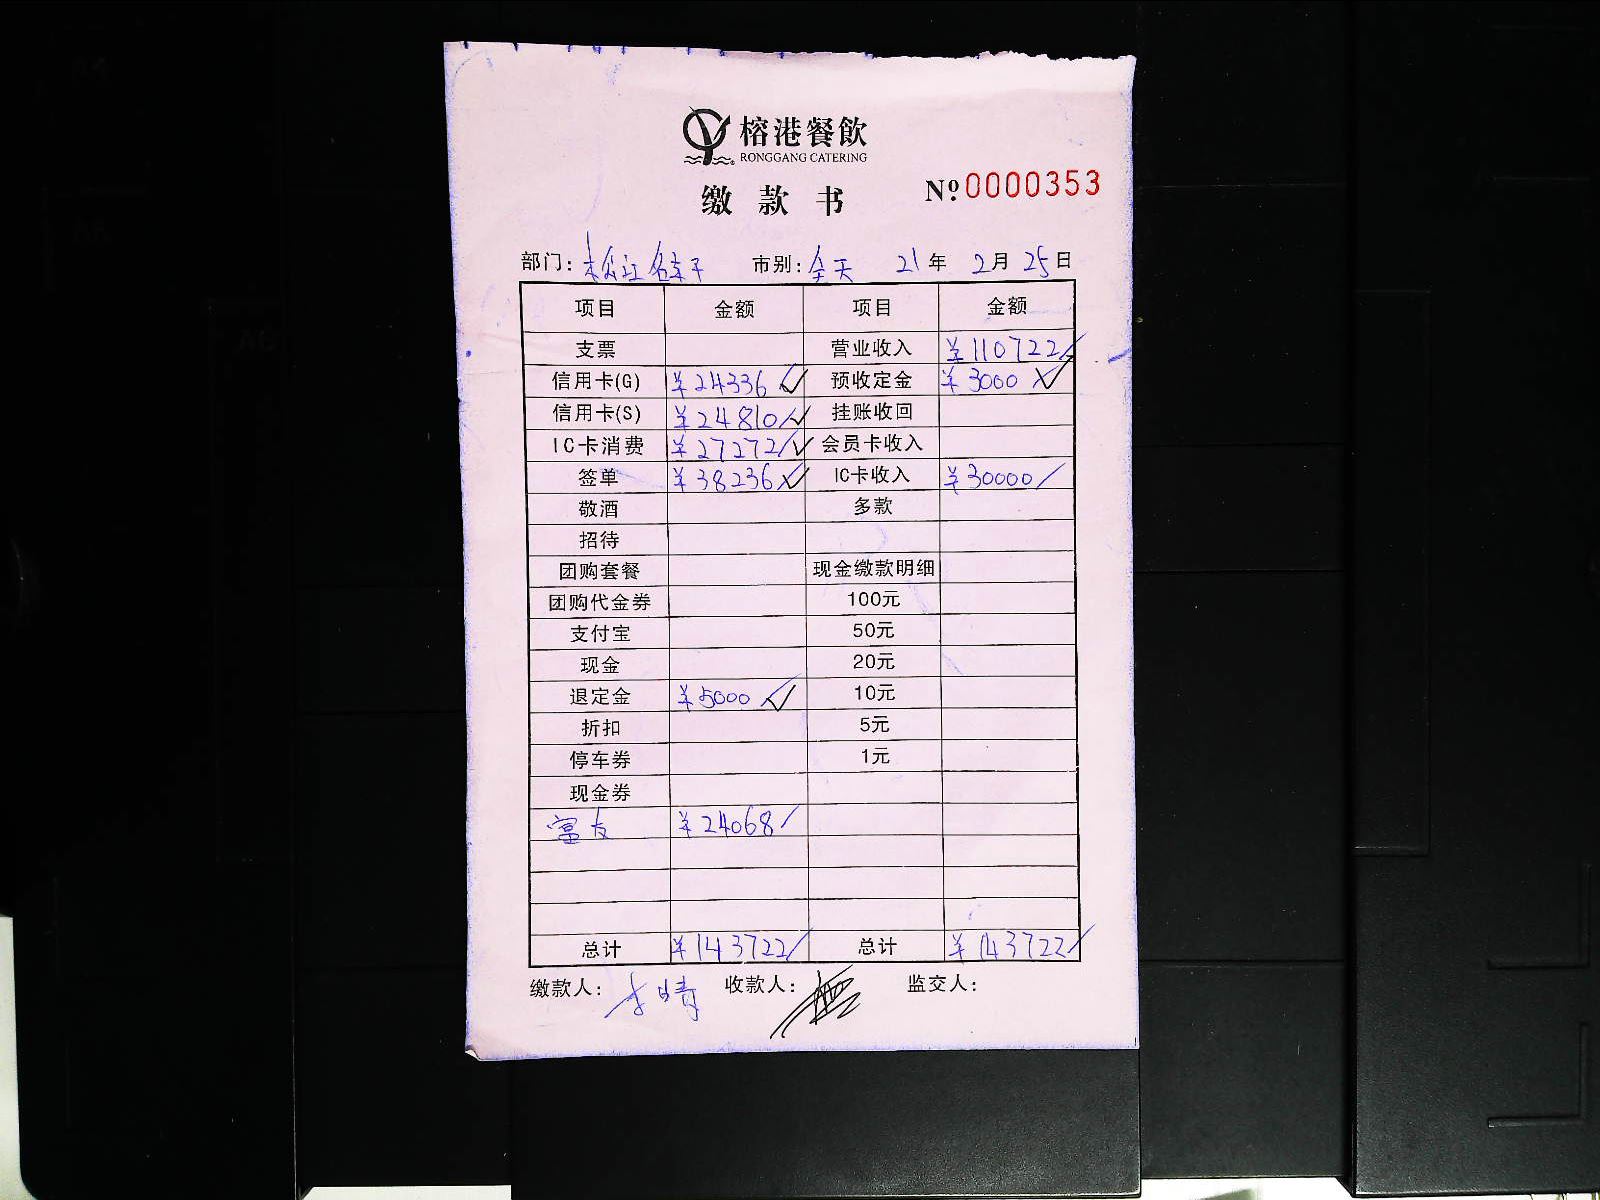 榕港餐飲
RONGGANG CATERING
缴款书 Nº 0000353
部门: 松江 市别: 全天 21年 2月 25日
项目 金额 项目 金额
支票 营业收入 ¥110722
信用卡(G) ¥24336 预收定金 ¥3000
信用卡(S) ¥24810 挂账收回
IC卡消费 ¥27272 会员卡收入
签单 ¥38236 IC卡收入 ¥30000
敬酒 多款
招待
团购套餐 现金缴款明细
团购代金券 100元
支付宝 50元
现金 20元
退定金 ¥5000 10元
折扣 5元
停车券 1元
现金券
富友 ¥24068
总计 ¥143722 总计 ¥143722
缴款人: 李晴 收款人: 监交人: